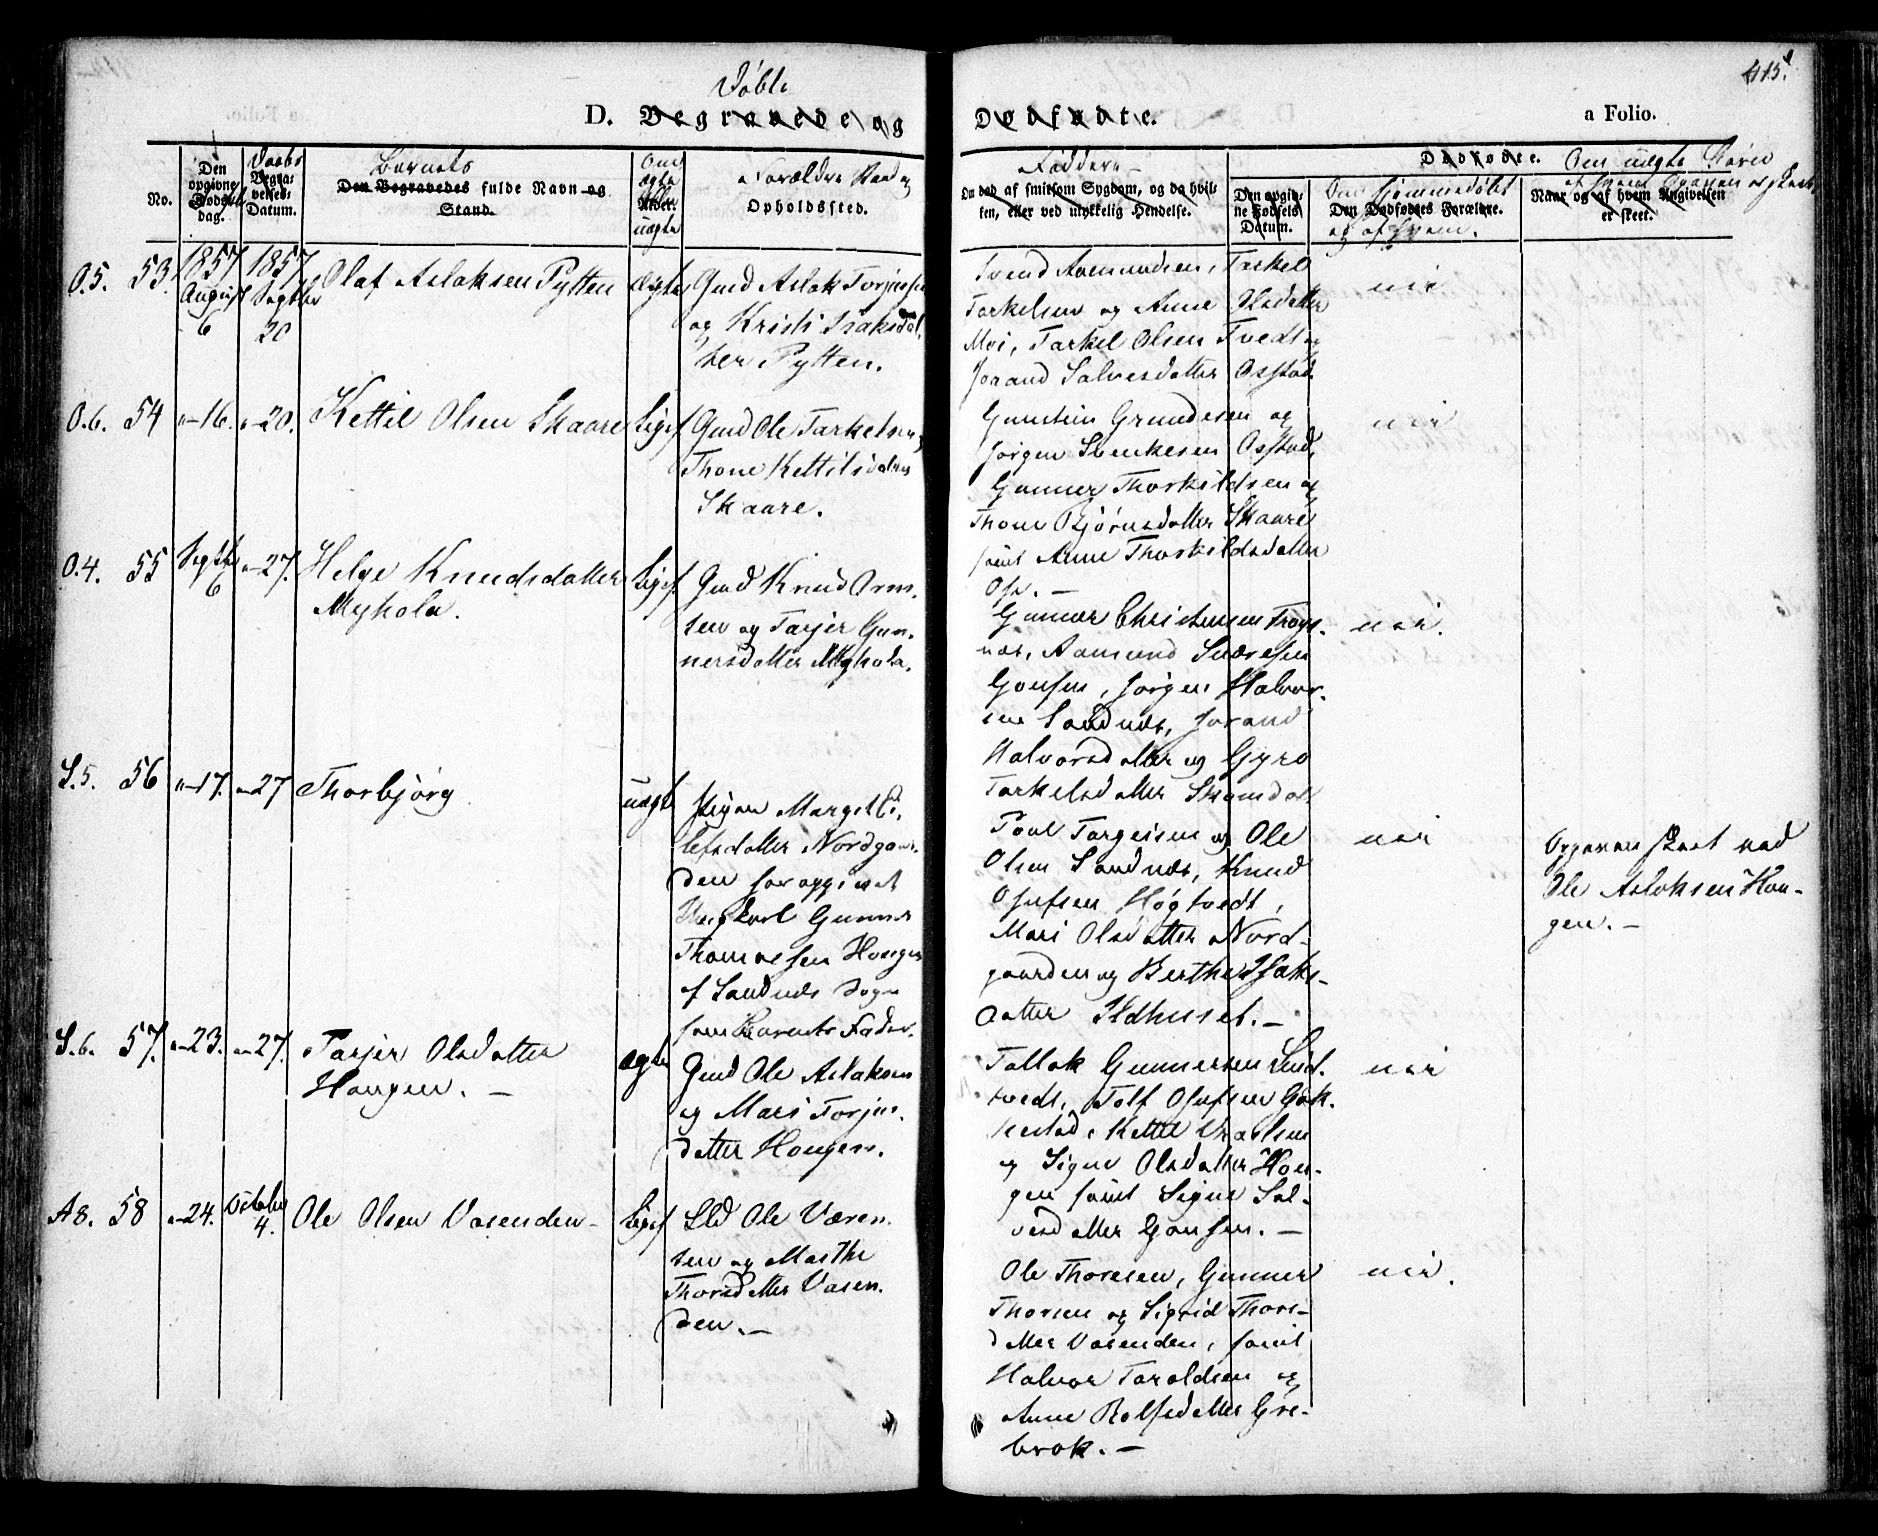 415.
Døbte
D. Begravede og Dødfødte. a Folio.
No.
Den opgivne Døds-dag.
Daabs
Begravelses-Datum.
Barnets
Den Begravedes fulde Navn og Stand.
Om
ægte
Alder.
uægte
Forældre Stand og
Opholdssted.
Faddere
Om død af smitsom Sygdom, og da hvilken, eller ved ulykkelig Hendelse.
Dødfødte.
Den opgivne Fødsels Datum.
Om hjemmedøbt
Den Dødfødtes Forældre.
og af hvem.
Om uægte Børn
af hvem Opgaven er skeet
Naar og af hvem Angivelsen er skeet.
O.5. 53. 1857 August 6
1857 Septbr 20
Olaf Aslaksen Pytten
Ægte
Gmd Aslak Torjussen
og Kristi Isaksdat-
ter Pytten.
Svend Aamundsen, Tarkel
Tarkelsen og Anne Olsdatter
Moi, Tarkel Olsen Tvedt og
Jorand Salvesdatter Osstad.
nei
O.6. 54 "-16. "-20.
Kettil Olsen Skaare
Liges
Gmd Ole Tarkelsen og
Thone Kettilsdatter
Skaare.
Gunstein Grundesen og
Jørgen Svenkesen Osstad,
Gunner Thorkildsen og
Thone Bjørnsdatter Skaare
samt Anne Thorkildsdatter
Ose. -
nei
O.4. 55 Septbr 6 "-27.
Helge Knudsdatter
Myhola.
Liges
Gmd Knud Orm-
sen og Tarjer Gun-
nersdatter Myhola.
Gunner Christensen Trogs-
næs, Aamund Sværesen
Gousen, Jørgen Halvor-
sen Sandnæs, Jorand
Halvorsdatter og Gyro
Tarkelsdatter Skomdal
nei.
S.5. 56 "-17. "-27
Thorbjørg
uægte
Pigen Margit E-
lefsdatter Nordgaar-
den har opgivet
Ungkarl Gunner
Thomassen Hougen
af Sandnæs Sogn
som Barnets Fader.
Poul Torgeisen og Ole
Olsen Sandnæs, Knud
Osufsen Høgtvedt,
Mari Olsdatter Nord-
gaarden og Berthe Isaks-
datter Ildhuset. -
nei
Opgaven skeet ved
Ole Aslaksen Hou-
gen. -
S.6. 57. "-23. "-27.
Tarjer Olsdatter
Hougen. -
ægte
Gmd Ole Aslaksen
og Mari Torjus-
datter Hougen.
Tallak Gunnersen Lind-
tvedt, Tolf Osufsen Gak-
kestad, Kettil
og Signe Olsdatter Hou-
gen samt Signe Sal-
vesdatter Gousen. -
nei
A8. 58 "-24. October 4.
Ole Olsen Vasenden -
Ligef
Lld Ole Væren-
sen og Marthe
Thorsdatter Vasen-
den. -
Ole Thoresen, Gunner
Thorsen og Sigrid Thors-
datter Vasenden, samt
Halvor Taraldsen og
Anne Rolfsdatter Gre-
brok. -
nei.